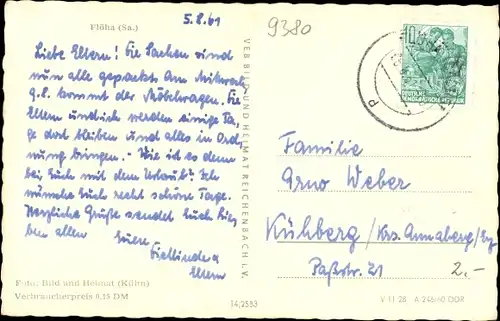 Flöha (Sa.)
5.8.61
9380
Liebe Eltern! Die Sachen sind
nun alle gepackt. Am Mittwoch,
9.8. kommt der Möbelwagen. Die
Eltern und ich werden einige Ta-
ge dort bleiben und alles in Ord-
nung bringen. - Wie ist es denn
bei Euch mit dem Urlaub? Ich
wünsche Euch recht schöne Tage.
Herzliche Grüße sendet Euch
ben allen Eure
Eltern
Foto: Bild und Heimat (Kühn)
Verbraucherpreis 0,15 DM
VEB BILD UND HEIMAT REICHENBACH I. V.
14/2583
10
DEUTSCHE
DEMOKRATISCHE REPUBLIK
Familie
Arno Weber
Kühberg/Krs. Annaberg/Erz
Paßstr. 21
2.-
V 11 28 A 246/60 DDR